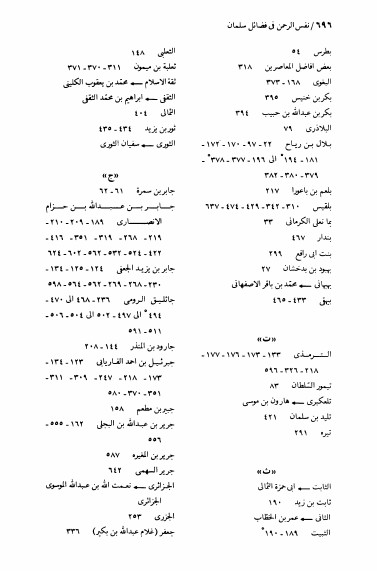 ٦٩٦ / نفس الرحمن فى فضائل سلمان
بطرس ٥٤
بعض افاضل المعاصرین ٣١٨
البغوى ١٦٨ـ ٣٧٣
بکر بن خنیس ٣٩٥
بکر بن عبدالله بن حبیب ٣٩٤
البلاذرى ٧٩
بلال بن ریاح ٢٢ـ ٩٧ـ ١٧٠ـ ١٧٢ـ
١٨١ـ ١٩٤* الى ١٩٦ـ ٣٧٧ـ ٣٧٨* ـ
٣٧٩ـ ٣٨٠ـ ٣٨٢
بلعم بن باعورا ٢١٧
بلقیس ٣١٠ـ ٣٤٢ـ ٤٢٩ـ ٤٧٤ـ ٦٣٧
بمانعلى الکرمانى ٣٣
بندار ٤٦٧
بنت ابى رافع ٢٩٩
بهبود بن بدخشان ٢٧
بهبهانى ← محمّد بن باقر الاصفهانى
بیهقى ٤٣٣ـ ٤٦٥
«ت»
التـرمـذى ١٣٣ـ ١٧٣ـ ١٧٦ـ ١٧٧ـ
٢١٨ـ ٣٢٦ـ ٥٩٦
تیمور السّلطان ٨٣
تلعکبرى ← هارون بن موسى
تلید بن سلمان ٤٢١
تیره ٢٩١
«ث»
الثابت ← ابى حمزة الثمالى
ثابت بن زید ١٩٠
الثانى ← عمر بن الخطّاب
الثبیت ١٨٩ـ ١٩٠*
الثعلبى ١٤٨
ثعلبة بن میمون ٣١١ـ ٣٧٠ـ ٣٧١
ثقة الاسلام ← محمّد بن یعقوب الکلینى
الثقفى ← ابراهیم بن محمّد الثقفى
الثمالى ٤٠٤
ثور بن یزید ٤٣٤ـ ٤٣٥
الثورى ← سفیان الثورى
«ج»
جابر بن سمرة ٦١ـ ٦٢
جـابـر بـن عـبـدالله بـن حـزام
الانـصـارى ١٨٩ـ ٢٠٩ـ ٢١٠ـ
٢١٩ـ ٢٦٨ـ ٣١٩ـ ٣٥١ـ ٤١٦ـ
٤٢٢ـ ٥٢٤ـ ٥٣٢ـ ٥٦٢ـ ٦٠٢ـ ٦٢٤
جابر بن یزید الجعفى ١٢٤ـ ١٢٥ـ ١٣٤ـ
٢٣٠ـ ٢٦٨ـ ٢٦٩ـ ٥٦٢ـ ٥٦٤ـ ٥٩٨
جاثلیق الرومى ٢٣٦ـ ٤٦٨ الى ٤٧٠ـ
٤٩٤* الى ٤٩٧ـ ٥٠٢ الى ٥٠٤ـ ٥٠٦ـ
٥١١ـ ٥٩١
جارود بن المنذر ١٤٤ـ ٢٠٨
جبرئیل بن احمد الفاریابى ١٢٣ـ ١٣٤ـ
١٧٣ـ ٢١٨ـ ٢٤٧ـ ٣٠٩ـ ٣١١ـ
٣٥١ـ ٣٧٠ـ ٥٨٠
جبیر بن مطعم ١٥٨
جریر بن عبدالله بن البجلى ١٦٢ـ ٥٥٥ـ
٥٥٦
جریر بن المغیره ٥٨٧
جریر السهمى ٦٤٢
الجـزائـرى ← نعـمـت الله بن عبدالله الموسوى
الجزائرى
الجزرى ٢٥٣
جعفر (غلام عبدالله بن بکیر) ٣٣٦